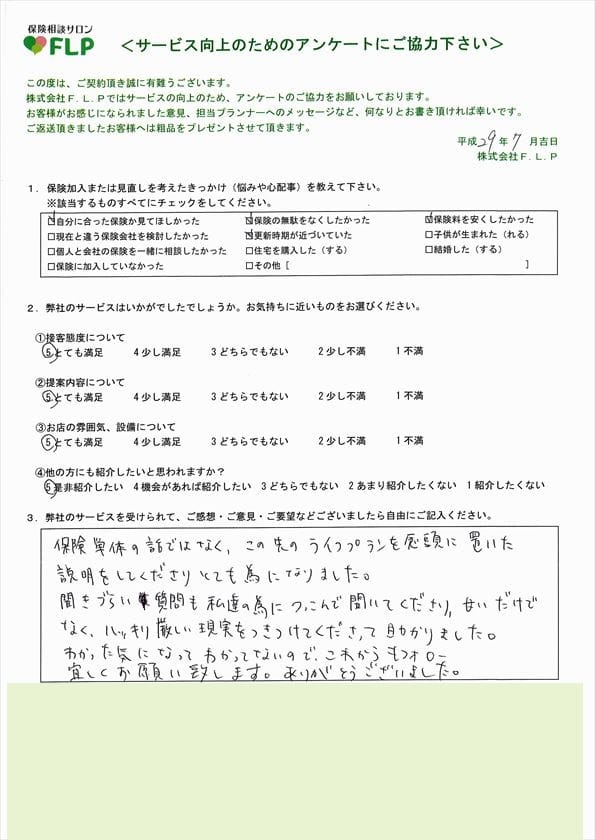 保険相談サロン
FLP
＜サービス向上のためのアンケートにご協力下さい＞
この度は、ご契約頂き誠に有難うございます。
株式会社F．L．Pではサービスの向上のため、アンケートのご協力をお願いしております。
お客様がお感じになられました意見、担当プランナーへのメッセージなど、何なりとお書き頂ければ幸いです。
ご返送頂きましたお客様へは粗品をプレゼントさせて頂きます。
平成29年7月吉日
株式会社F．L．P
1．保険加入または見直しを考えたきっかけ（悩みや心配事）を教えて下さい。
※該当するものすべてにチェックをしてください。
☑自分に合った保険か見てほしかった ☑保険の無駄をなくしたかった ☑保険料を安くしたかった
□現在と違う保険会社を検討したかった ☑更新時期が近づいていた □子供が生まれた（れる）
□個人と会社の保険を一緒に相談したかった □住宅を購入した（する） □結婚した（する）
□保険に加入していなかった □その他［ ］
2．弊社のサービスはいかがでしたでしょうか。お気持ちに近いものをお選びください。
①接客態度について
5とても満足 4少し満足 3どちらでもない 2少し不満 1不満
②提案内容について
5とても満足 4少し満足 3どちらでもない 2少し不満 1不満
③お店の雰囲気、設備について
5とても満足 4少し満足 3どちらでもない 2少し不満 1不満
④他の方にも紹介したいと思われますか？
5是非紹介したい 4機会があれば紹介したい 3どちらでもない 2あまり紹介したくない 1紹介したくない
3．弊社のサービスを受けられて、ご感想・ご意見・ご要望などございましたら自由にご記入ください。
保険単体の話ではなく、この先のライフプランを念頭に置いた
説明をしてくださりとても為になりました。
聞きづらい質問も私達の為につっこんで聞いてくださり、甘いだけで
なく、ハッキリ厳しい現実をつきつけてくださって助かりました。
わかった気になってわかってないので、これからもフォロー
宜しくお願い致します。ありがとうございました。